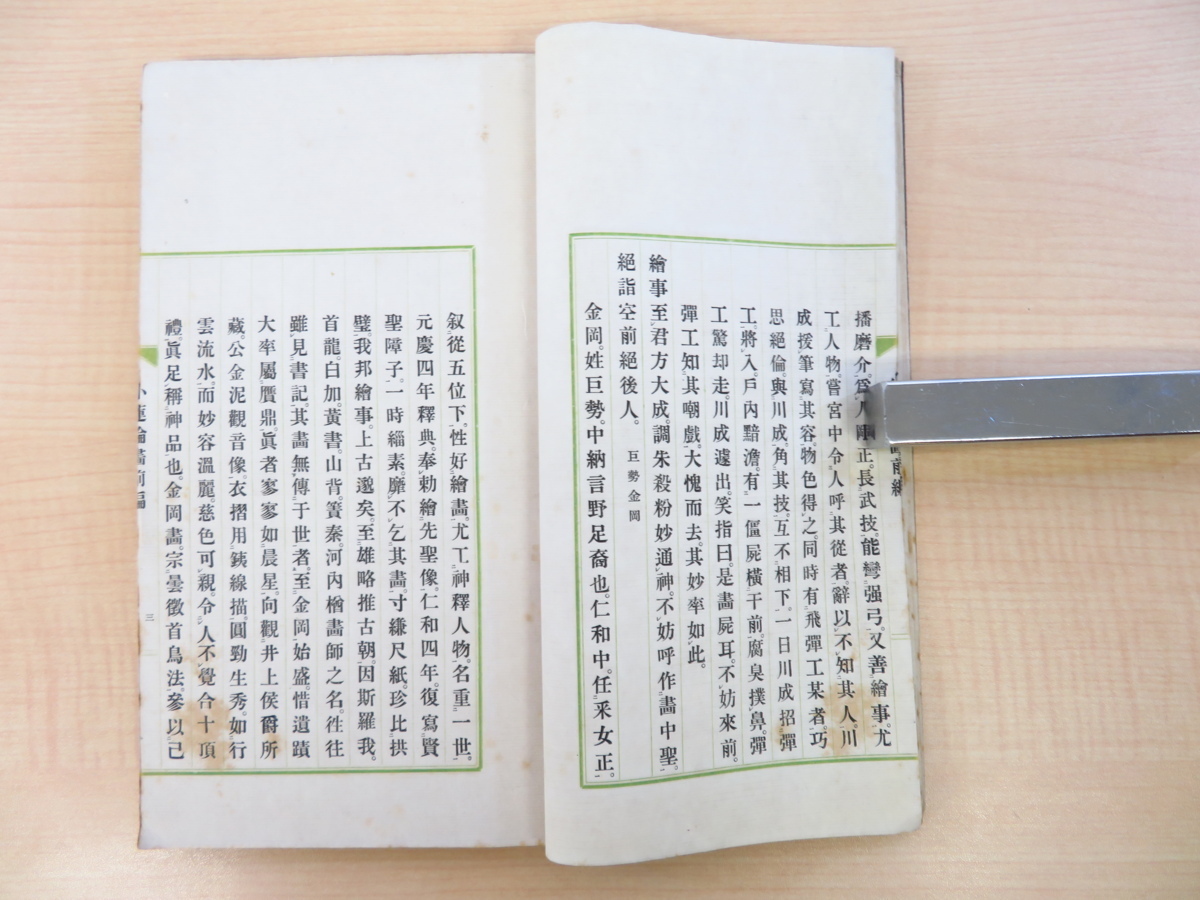 播磨介。爲人剛正。長武技。能彎强弓。又善繪事。尤
工人物。嘗宮中令人呼其從者。辭以不知其人。川
成援筆寫其容。物色得之。同時有飛彈工某者。巧
思絕倫。與川成角其技。互不相下。一日川成招彈
工。將入。戶內黯澹。有一僵屍橫于前。腐臭撲鼻。彈
工驚却走。川成遽出。笑指曰。是畫屍耳。不妨來前。
彈工知其嘲戲。大愧而去。其妙率如此。
繪事至君方大成。調朱殺粉妙通神。不妨呼作畫中聖。
絕詣空前絕後人。 巨勢金岡
金岡。姓巨勢。中納言野足裔也。仁和中。任采女正。
叙從五位下。性好繪畫。尤工神釋人物。名重一世。
元慶四年釋典。奉勅繪先聖像。仁和四年。復寫賢
聖障子。一時緇素。靡不乞其畫。寸縑尺紙。珍比拱
璧。我邦繪事。上古邈矣。至雄略推古朝。因斯羅我。
首龍。白加。黃書。山背。簀秦。河內楢畫師之名。往往
雖見書記。其畫無傳于世者。至金岡始盛。惜遺蹟
大率屬贋鼎。眞者寥寥如晨星。向觀井上侯爵所
藏。公金泥觀音像。衣摺用銕線描。圓勁生秀。如行
雲流水。而妙容溫麗。慈色可親。令人不覺合十頂
禮。眞足稱神品也。金岡畫。宗曇徵首鳥法。參以己
三